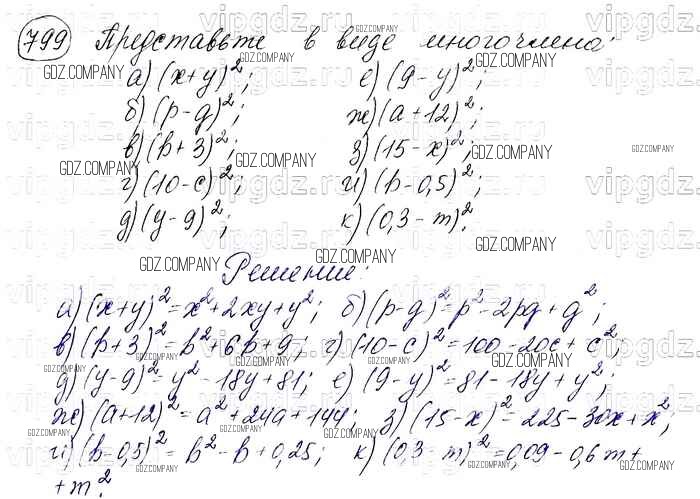 799 Представьте в виде многочлена:
а) (x+y)²; е) (9-y)²;
б) (p-q)²; ж) (a+12)²;
в) (b+3)²; з) (15-x)²;
г) (10-c)²; и) (b-0,5)²;
д) (y-9)²; к) (0,3-m)².
Решение:
а) (x+y)²=x²+2xy+y²; б) (p-q)²=p²-2pq+q²;
в) (b+3)²=b²+6b+9; г) (10-c)²=100-20c+c²;
д) (y-9)²=y²-18y+81; е) (9-y)²=81-18y+y²;
ж) (a+12)²=a²+24a+144; з) (15-x)²=225-30x+x²;
и) (b-0,5)²=b²-b+0,25; к) (0,3-m)²=0,09-0,6m+
+m².